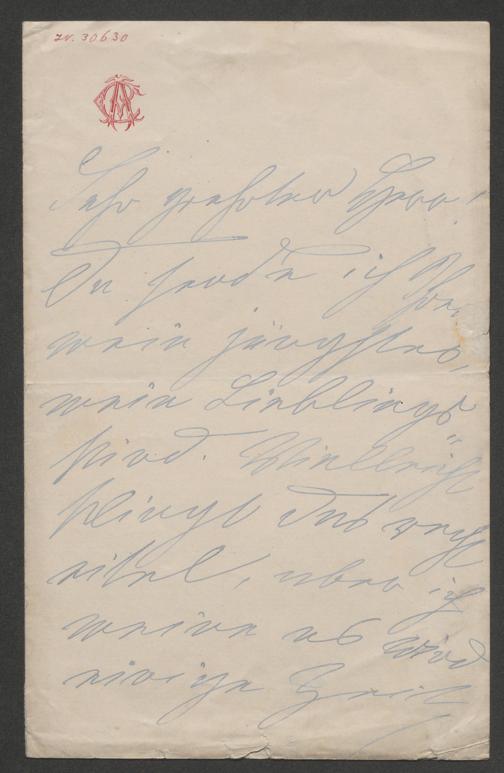 IN. 30630
Sehr geehrter Herr!
Da sende ich Ihnen
mein jüngstes,
mein Lieblings
kind. Vielleicht
klingt das recht
eitel, aber ich
meine es wird
einige Zeit